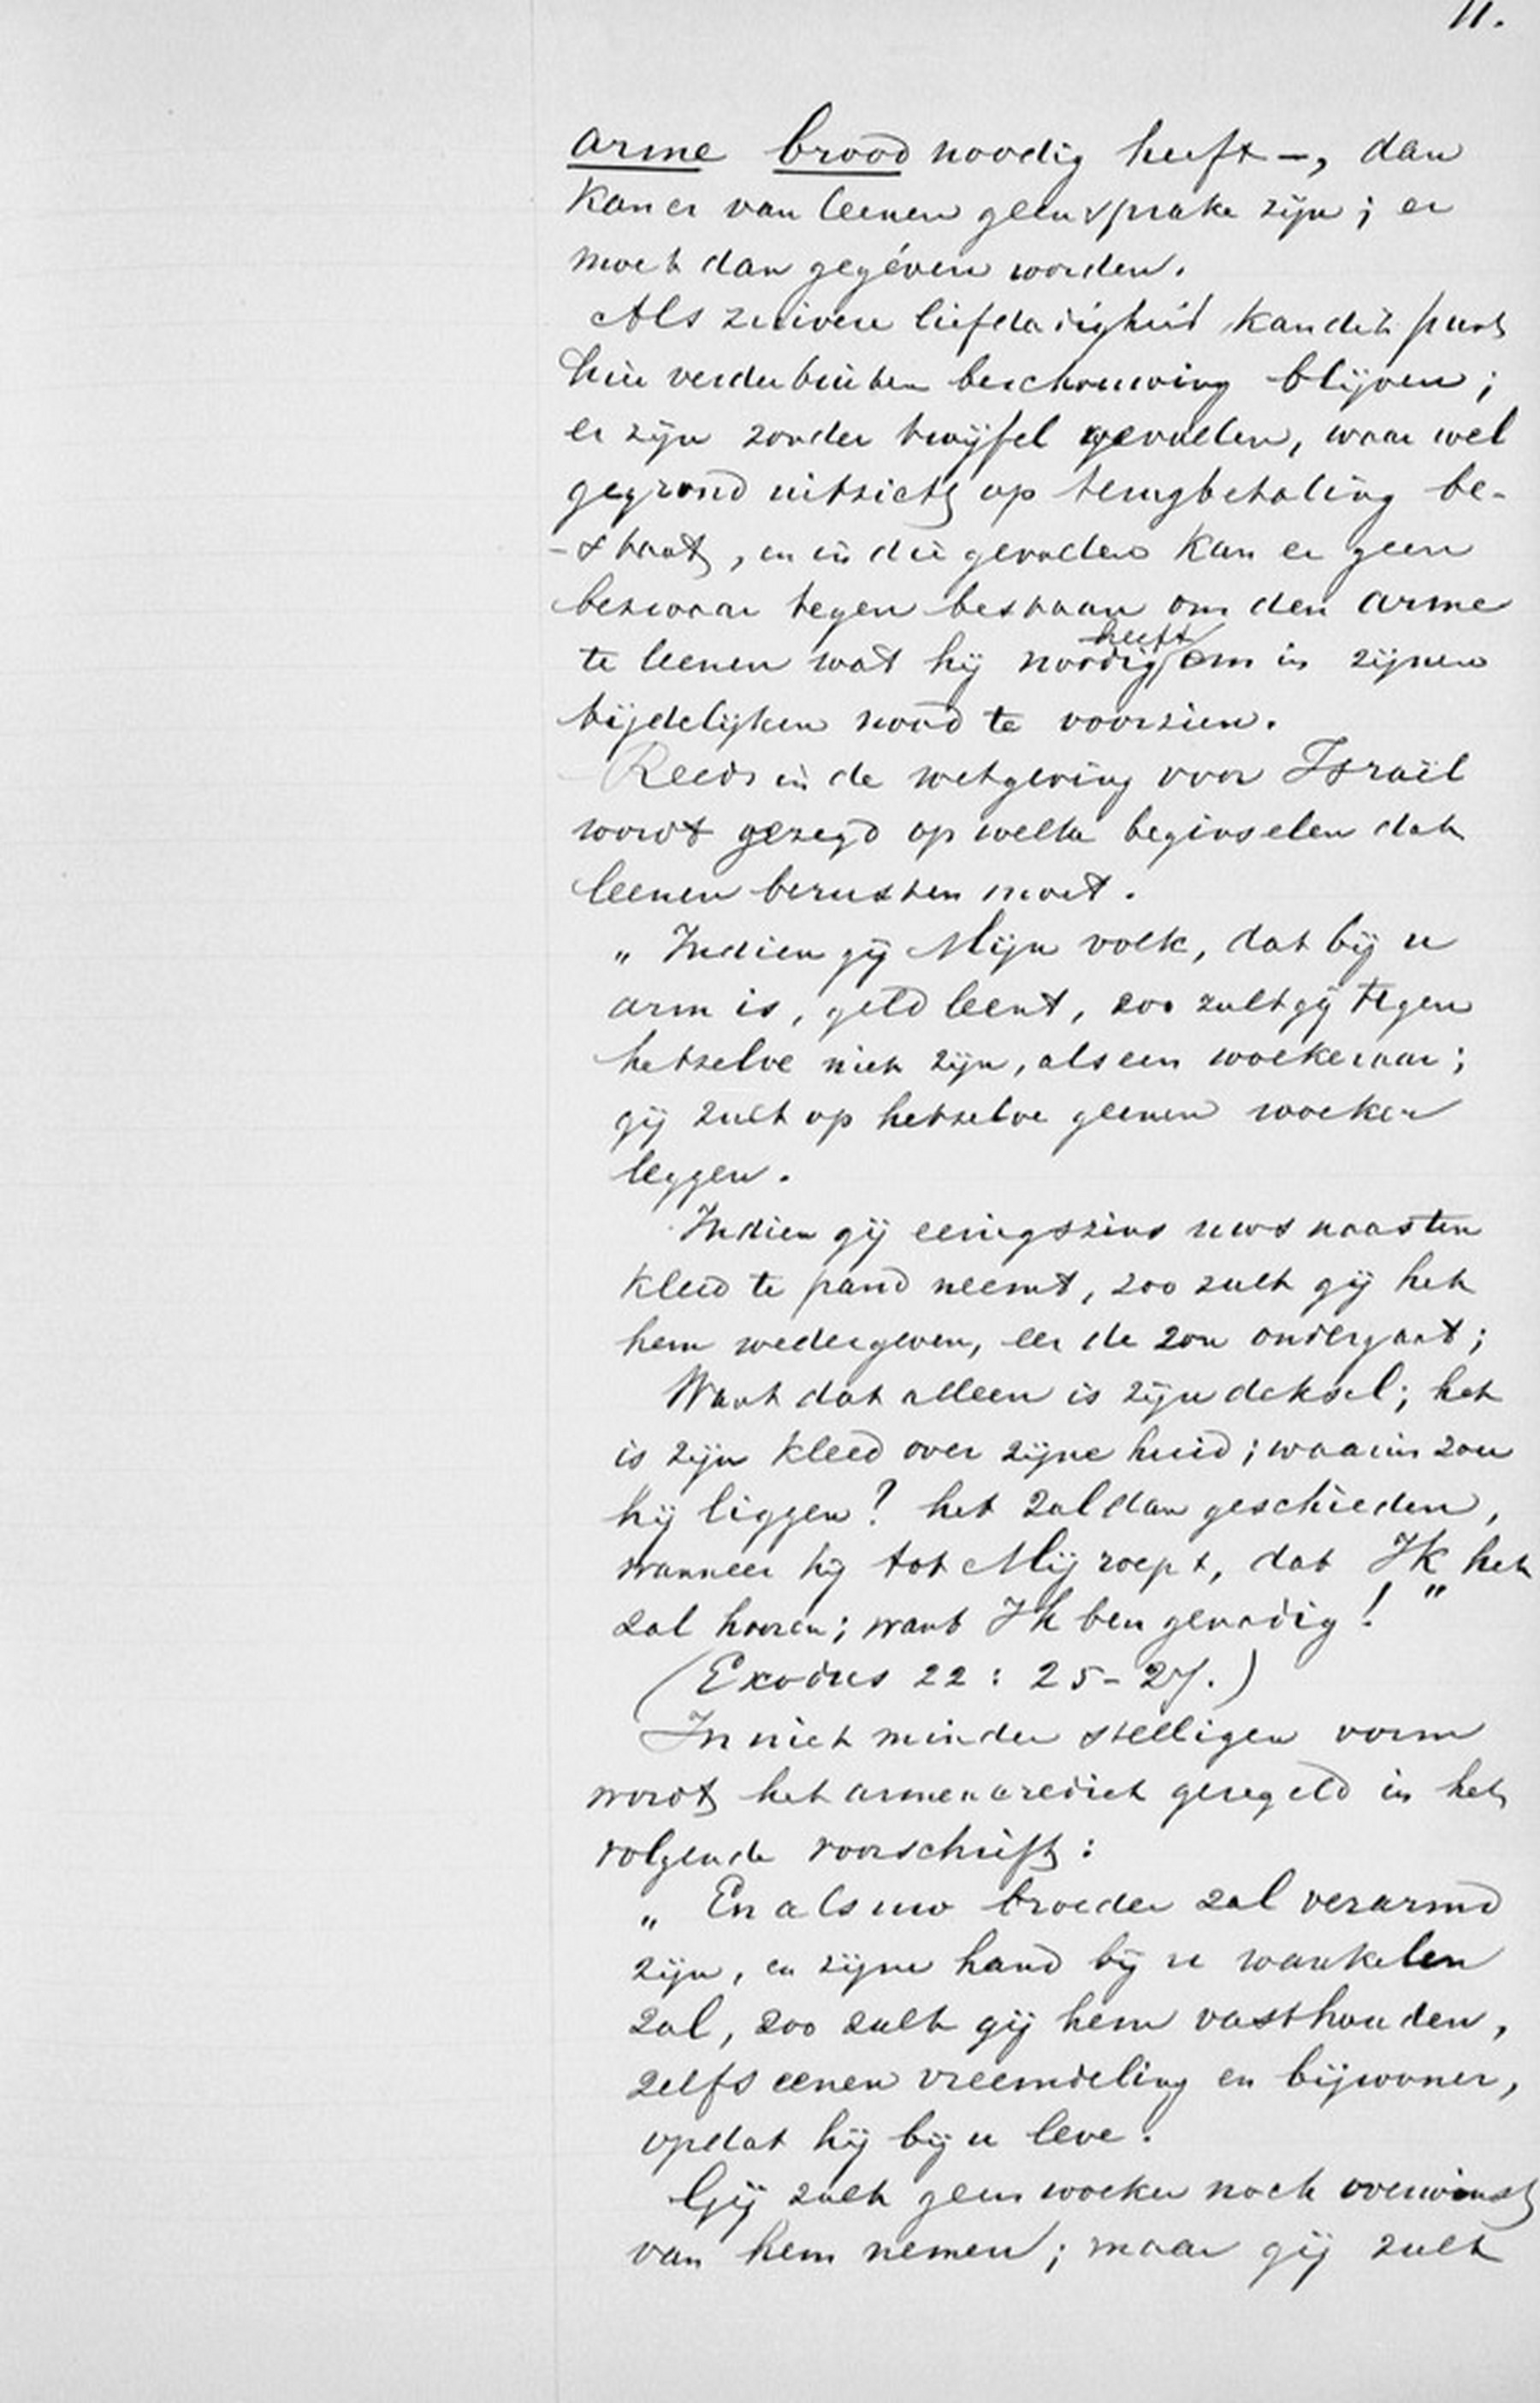 11.
arme brood noodig heeft —, dan
kan er van leenen geen sprake zijn; er
moet dan gegéven worden.
Als zuivere liefdadigheid kan dit punt
hier verder buiten beschouwing blijven;
er zijn zonder twijfel gevallen, waar wel
gegrond uitzicht op terugbetaling be-
-staat, en in die gevallen kan er geen
bezwaar tegen bestaan om den arme
te leenen wat hij noodig heeft om in zijnen
tijdelijken nood te voorzien.
Reeds in de wetgeving voor Israël
wordt gezegd op welke beginselen dat
leenen berusten moet.
„Indien gij Mijn volk, dat bij u
arm is, geld leent, zoo zult gij tegen
hetzelve niet zijn, als een woekeraar;
gij zult op hetzelve geenen woeker
leggen.
Indien gij eenigszins uws naasten
kleed te pand neemt, zoo zult gij het
hem wedergeven, eer de zon ondergaat;
Want dat alleen is zijn deksel; het
is zijn kleed over zijne huid; waarin zou
hij liggen? het zal dan geschieden,
wanneer hij tot Mij roept, dat Ik het
zal hooren; want Ik ben genadig!"
(Exodus 22: 25-27.)
In niet minder stelligen vorm
wordt het armencrediet geregeld in het
volgende voorschrift:
„En als uw broeder zal verarmd
zijn, en zijne hand bij u wankelen
zal, zoo zult gij hem vasthouden,
zelfs eenen vreemdeling en bijwoner,
opdat hij bij u leve.
Gij zult geen woeker noch overwinst
van hem nemen; maar gij zult